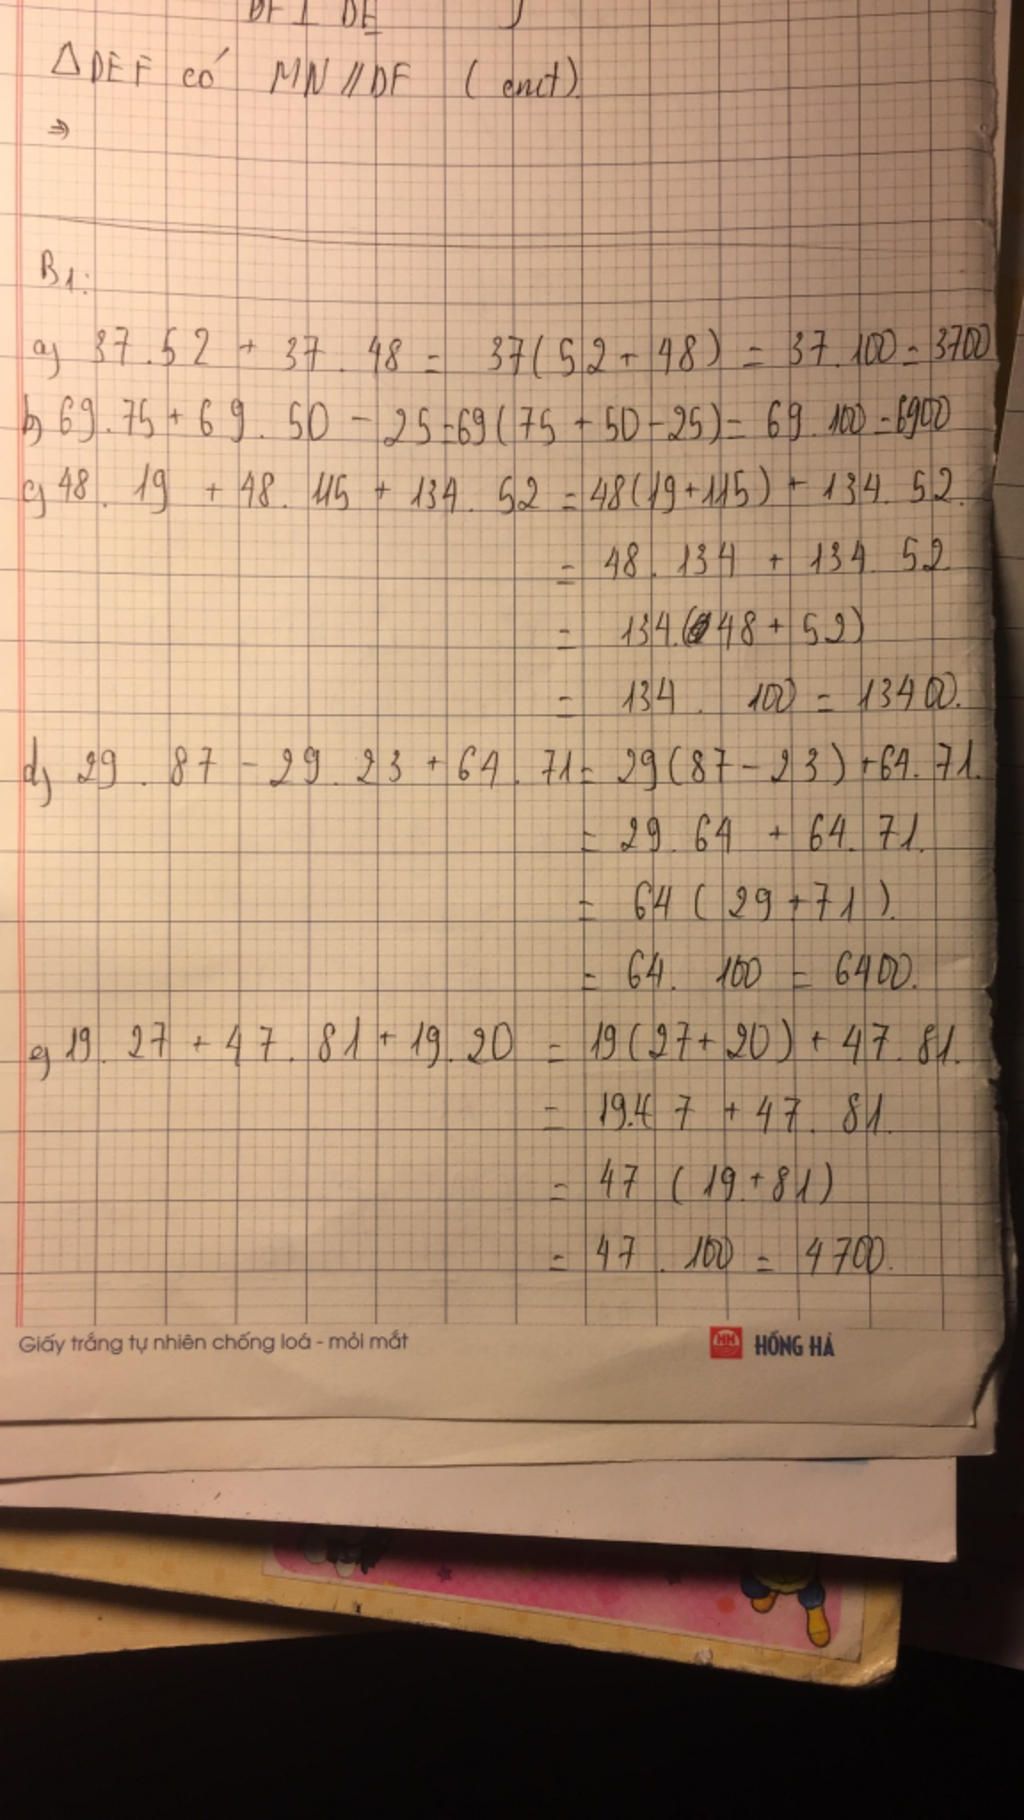 DF ⊥ DE }
△DEF có MN // DF (cmt)
⇒
B1:
a) 37.52 + 37.48 = 37(52 + 48) = 37.100 = 3700
b) 69.75 + 69.50 - 25 = 69(75 + 50 - 25) = 69.100 = 6900
c) 48.19 + 48.115 + 134.52 = 48(19+115) + 134.52.
= 48.134 + 134.52
= 134.(48 + 52)
= 134.100 = 13400.
d) 29.87 - 29.23 + 64.71 = 29(87 - 23) + 64.71.
= 29.64 + 64.71.
= 64(29 + 71).
= 64.100 = 6400.
e) 19.27 + 47.81 + 19.20 = 19(27 + 20) + 47.81.
= 19.47 + 47.81.
= 47(19 + 81)
= 47.100 = 4700.
Giấy trắng tự nhiên chống loá - mỏi mắt
HH HỒNG HÀ